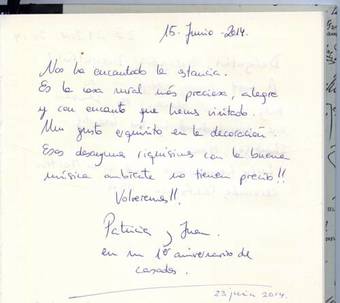 15-Junio-2014.
Nos ha encantado la estancia.
Es la casa rural más preciosa, alegre
y con encanto que hemos visitado.
Un gusto exquisito en la decoración
Esos desayunos riquísimos con la buena
música ambiente no tienen precio!!
Volveremos!!.
Patricia y Juan.
en su 1er aniversario de
casados.
23 junio 2014.